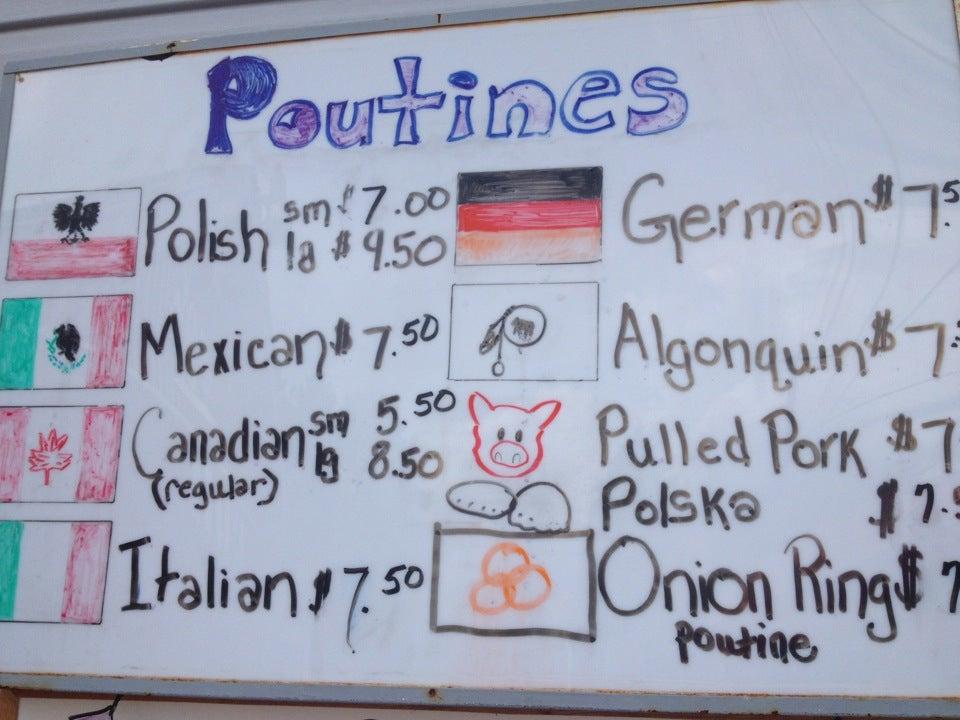 Poutines
Polish sm $ 7.00
la $ 9.50
German $ 7.5
Mexican $ 7.50
Algonquin $ 7.
Canadian sm 5.50
(regular) lg 8.50
Pulled Pork $ 7
Polska $ 7.
Italian $ 7.50
Onion Ring $ 7
poutine